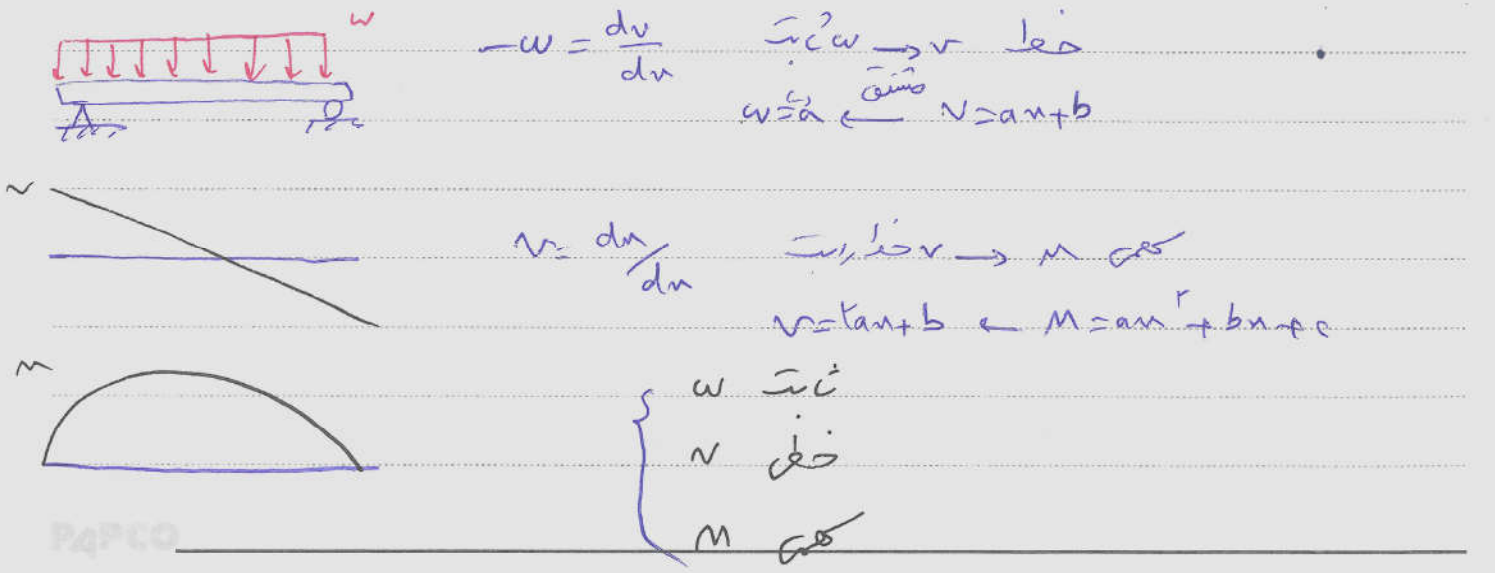 w
-w = dv/dx ثابت w → v خط
w = a ← مشتق v = ax+b
v
v = dM/dx خط راست v → M سهمی
v = ۲ax+b ← M = ax^۲ + bx + c
M
w ثابت
v خطی
M سهمی
PAPCO